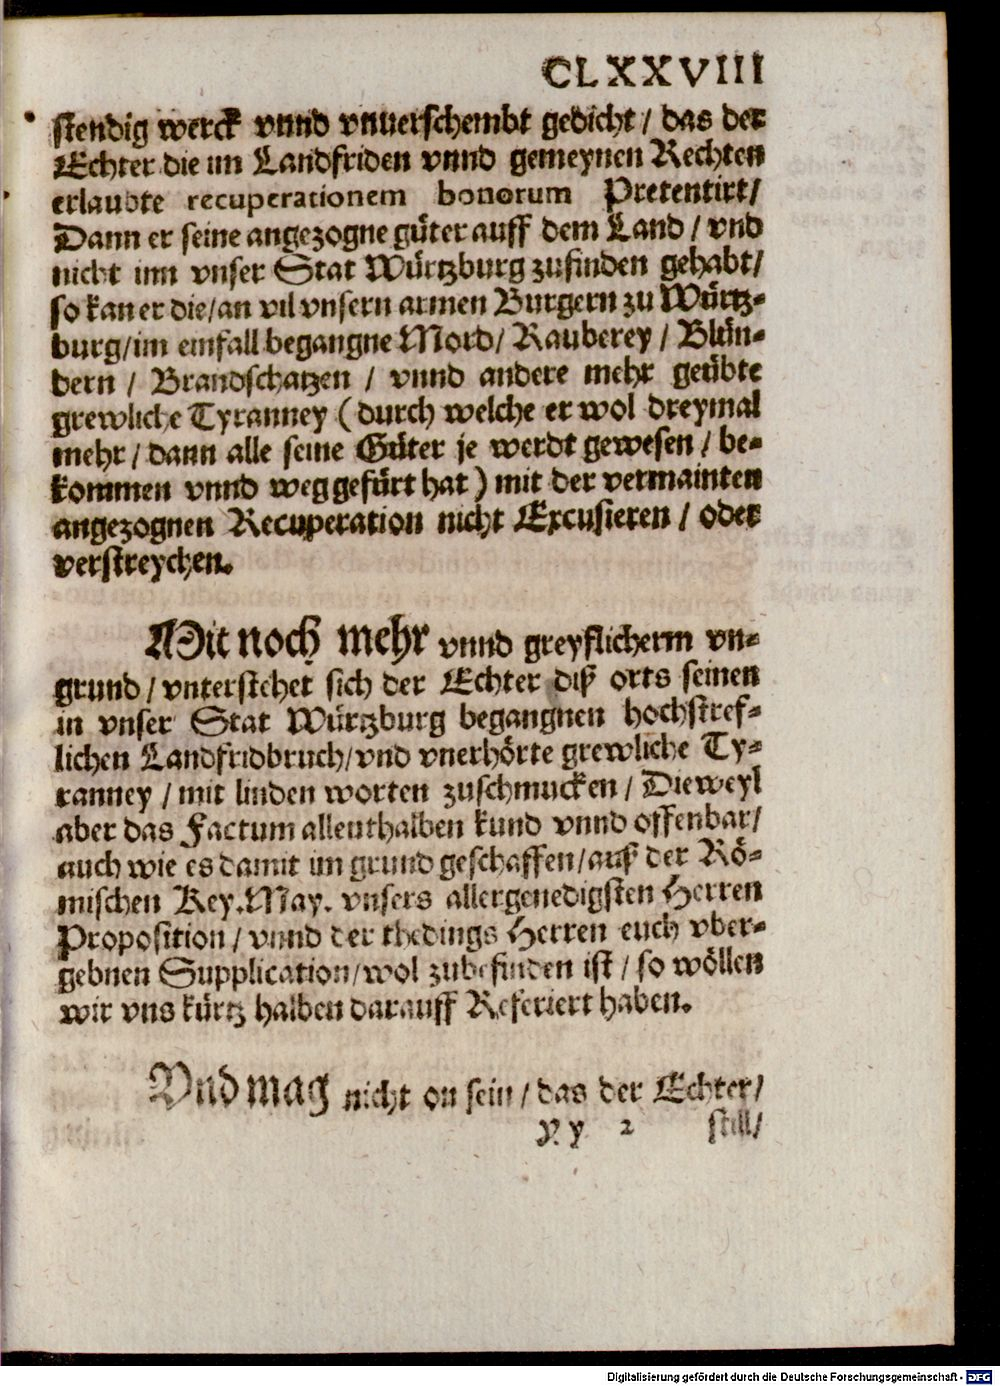 CLXXVIII
stendig werck vnnd vnuerschembt gedicht / das der
Echter die im Landfriden vnnd gemeynen Rechten
erlaubte recuperationem bonorum Pretentirt /
Dann er seine angezogne güter auff dem Land / vnd
nicht inn vnser Stat Würtzburg zufinden gehabt /
so kan er die / an vil vnsern armen Burgern zu Würtz-
burg / im einfall begangne Mord / Rauberey / Blün-
dern / Brandschatzen / vnnd andere mehr geübte
grewliche Tyranney (durch welche er wol dreymal
mehr / dann alle seine Güter je werdt gewesen / be-
kommen vnnd weggefürt hat) mit der vermainten
angezognen Recuperation nicht Excusieren / oder
verstreychen.
Mit noch mehr vnnd greyflicherm vn-
grund / vnterstehet sich der Echter diß orts seinen
in vnser Stat Würtzburg begangnen hochstref-
lichen Landfridbruch / vnd vnerhörte grewliche Ty-
ranney / mit linden worten zuschmucken / Dieweyl
aber das Factum allenthalben kund vnnd offenbar /
auch wie es damit im grund geschaffen / auß der Rö-
mischen Key. May. vnsers allergenedigsten Herren
Proposition / vnnd der thedings Herren euch vber-
gebnen Supplication / wol zubefinden ist / so wöllen
wir vns kürtz halben darauff Referiert haben.
Vnd mag nicht on sein / das der Echter /
Yy 2 still /
Digitalisierung gefördert durch die Deutsche Forschungsgemeinschaft - DFG